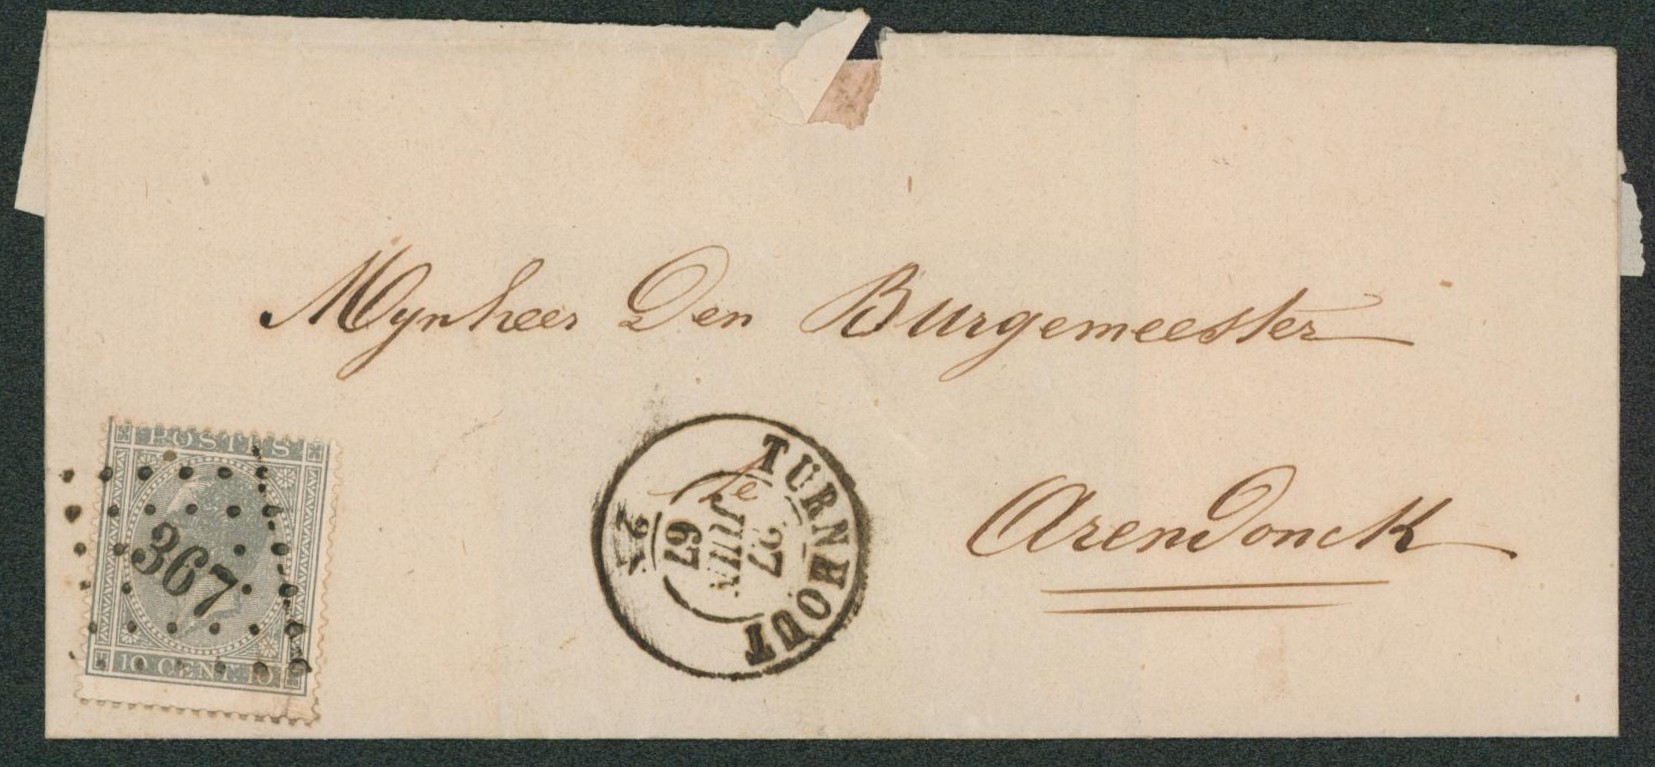 Mynheer Den Burgemeester
Arendonck
POSTES
367
10 CENT. 10
TURNHOUT
27
JUIN
67